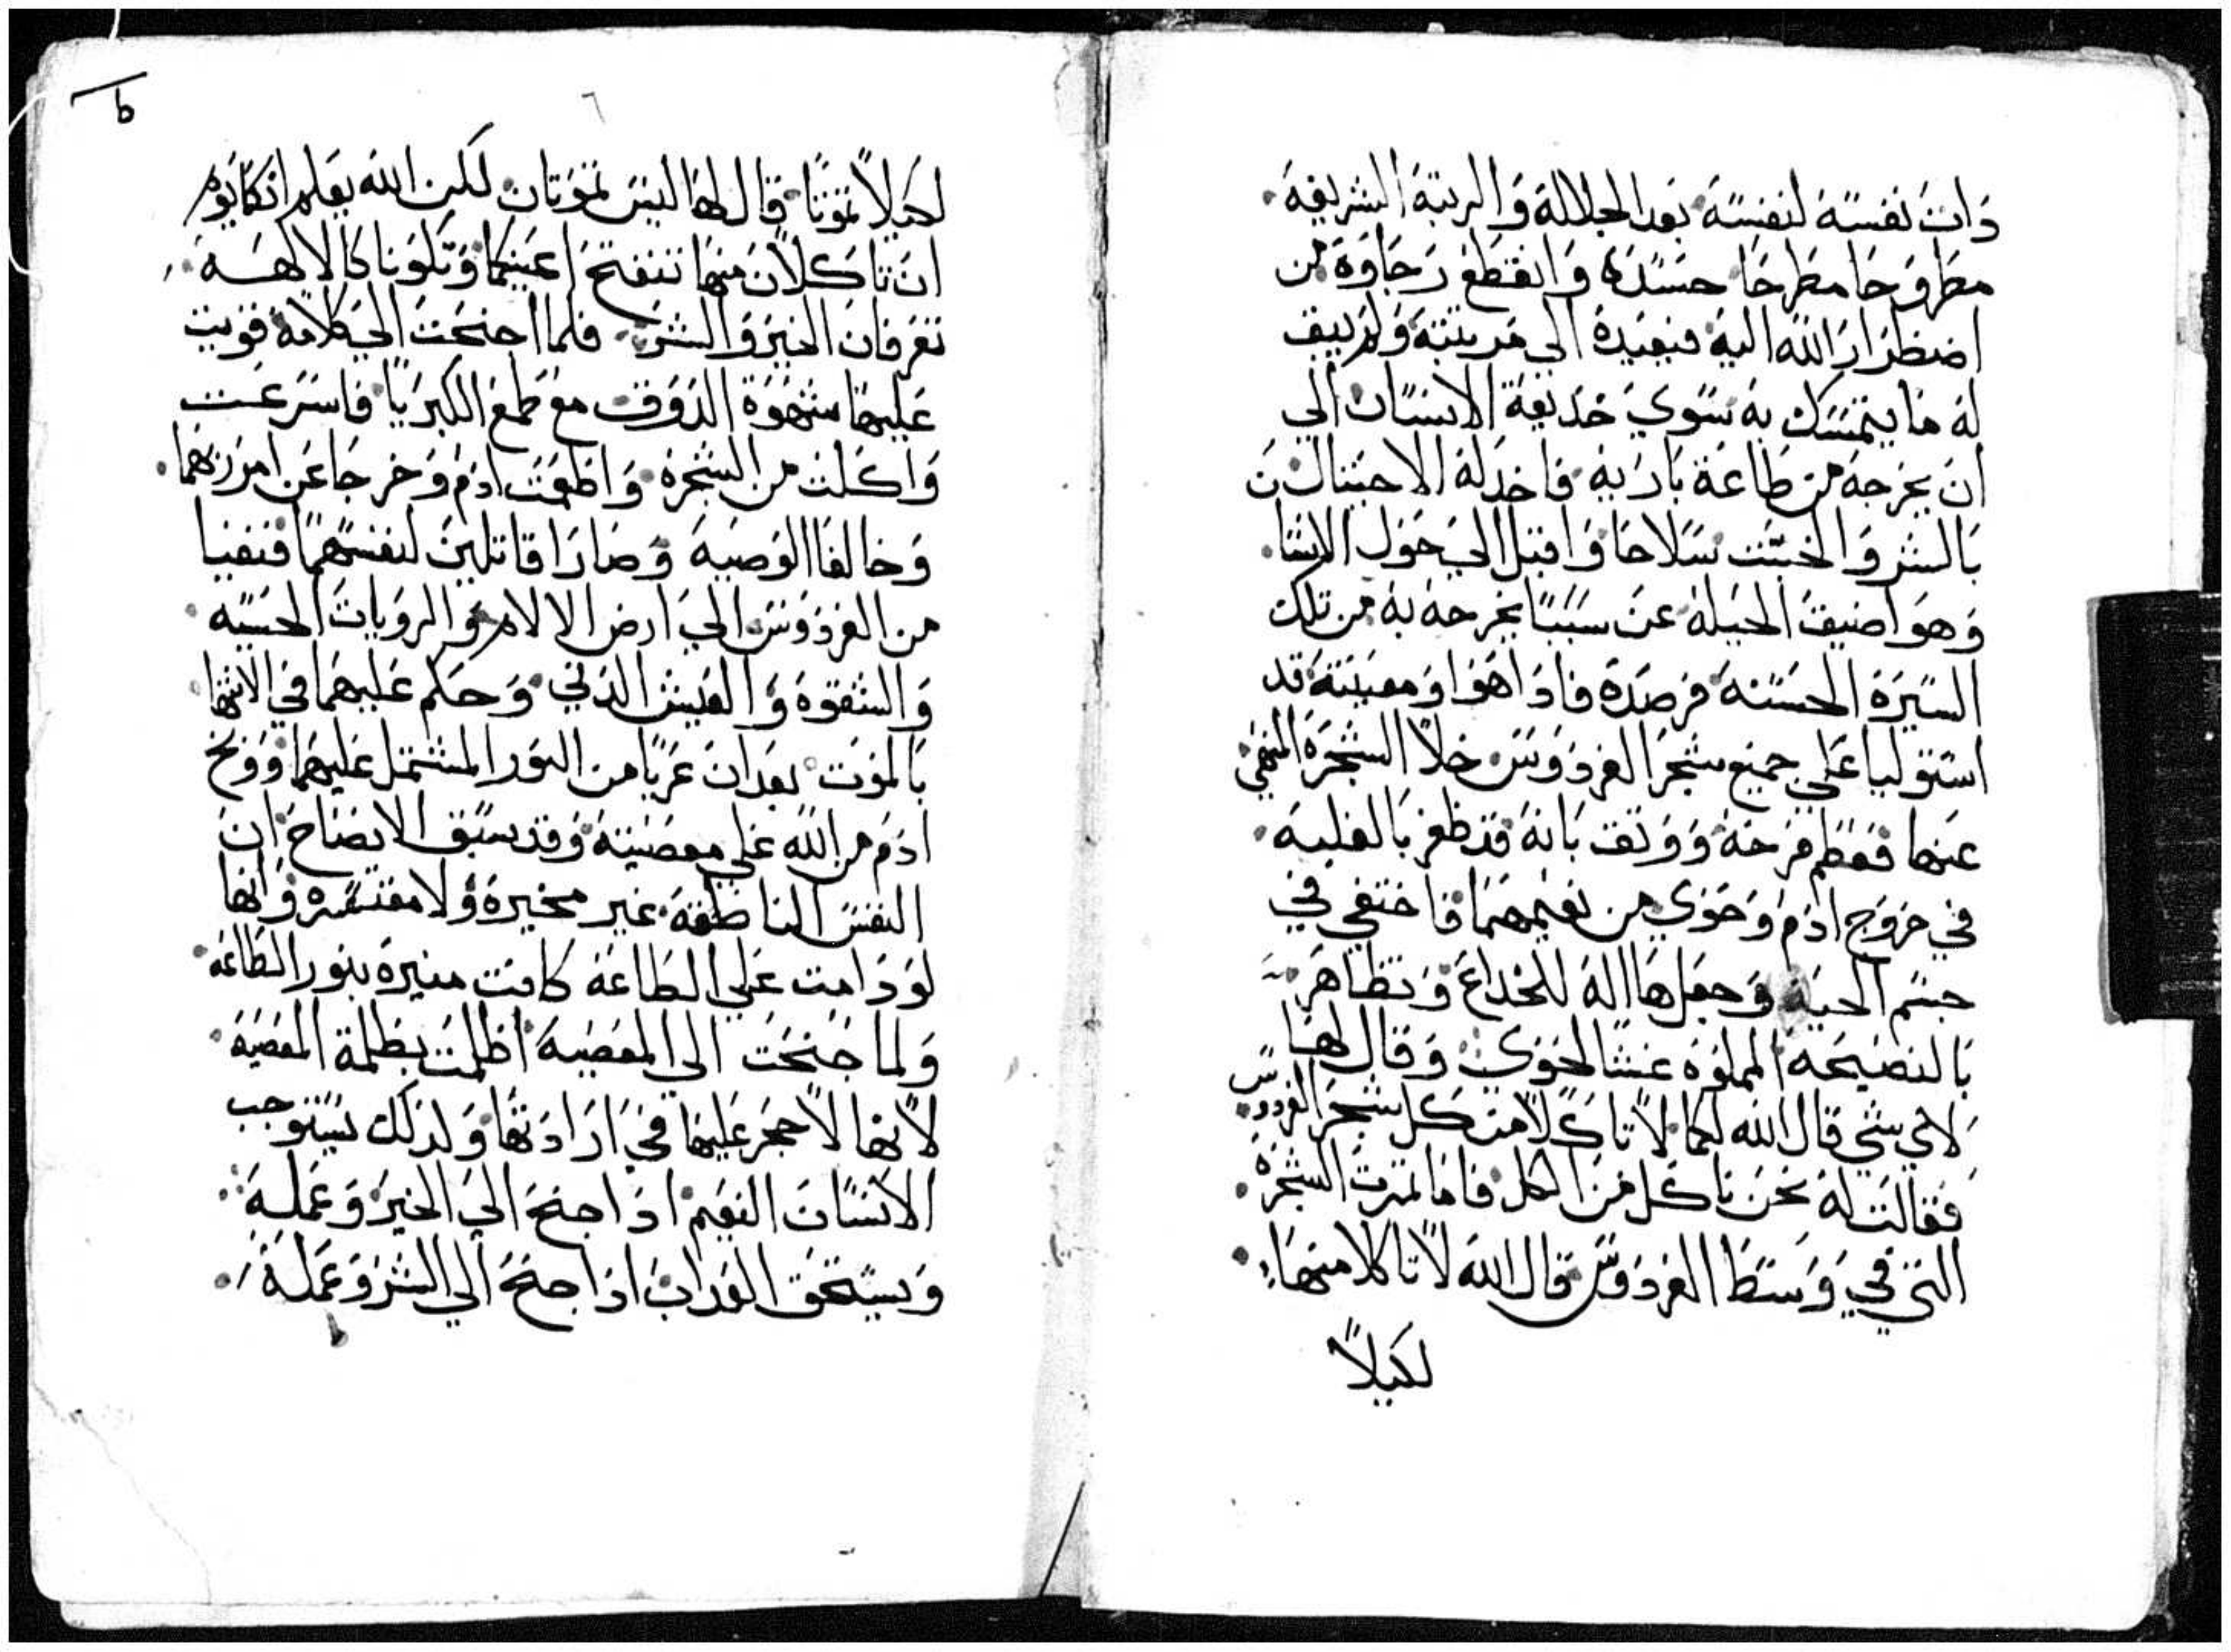 ذات نفسه لنفسه بعد الجلالة والرتبة الشريفه
مطروحا مطرحا حسده وانقطع رجاوه من
اضطرار الله اليه فيعيده الي مرتبته ولم يبق
له ما يتمسك به سوي خديعة الانسان الي
ان يخرجه من طاعة باريه فاخد له الاحتيال
بالشر والخبث سلاحا واقبل الي حول الانسا
وهو اضيق الحيلة عن سببا يخرجه به من تلك
السيرة الحسنه فرصده فاذا هو ومعينته قد
استوليا علي جميع شجر الفردوس خلا الشجرة المنهي
عنها فعظم فرحه ووثق بانه قد ظفر بالغلبه
في خروج ادم وحوي من نعيمهما فاختفي في
جسم الحيه وجعلها اله للخداع وتظاهر
بالنصيحه المملوه غشا لحوي وقال لها
لاي شي قال الله لكما لا تاكلا من كل شجر الفردوس
فقالت له نحن ناكل من الكل فاما ثمرت الشجرة
التي في وسط الفردوس قال الله لا تاكلا منها
لكيلا
ط
٦
لكيلا تموتا قال لها ليس تموتان لكن الله يعلم انكما يوم
ان تاكلان منها تنفتح اعينكما وتكونا كالالهه
تعرفان الخير والشر فلما اجنحت الي كلامه قويت
عليها شهوة الدوق مع طمع الكبريا فاسرعت
واكلت من الشجره واطعمت ادم وخرجا عن امر ربهما
وخالفا الوصيه وصارا قاتلين لنفسهما فنفيا
من الفردوس الي ارض الالام والرويات الحسيه
والشقوه والعيش الدني وحكم عليهما في الانتها
بالموت بعد ان عريا من النور المشتمل عليهما ووبخ
ادم من الله علي معصيته وقد سبق الايضاح ان
النفس الناطقه غير مخيره ولا مقتسره وانها
لو دامت علي الطاعة كانت منيرة بنور الطاعه
ولما جنحت الي المعصيه اظلمت بظلمة المعصيه
لانها لا حجر عليها في ارادتها ولدلك يستوجب
الانسان النعيم ادا جنح الي الخير وعمله
ويستحق العداب ادا جنح الي الشر وعمله